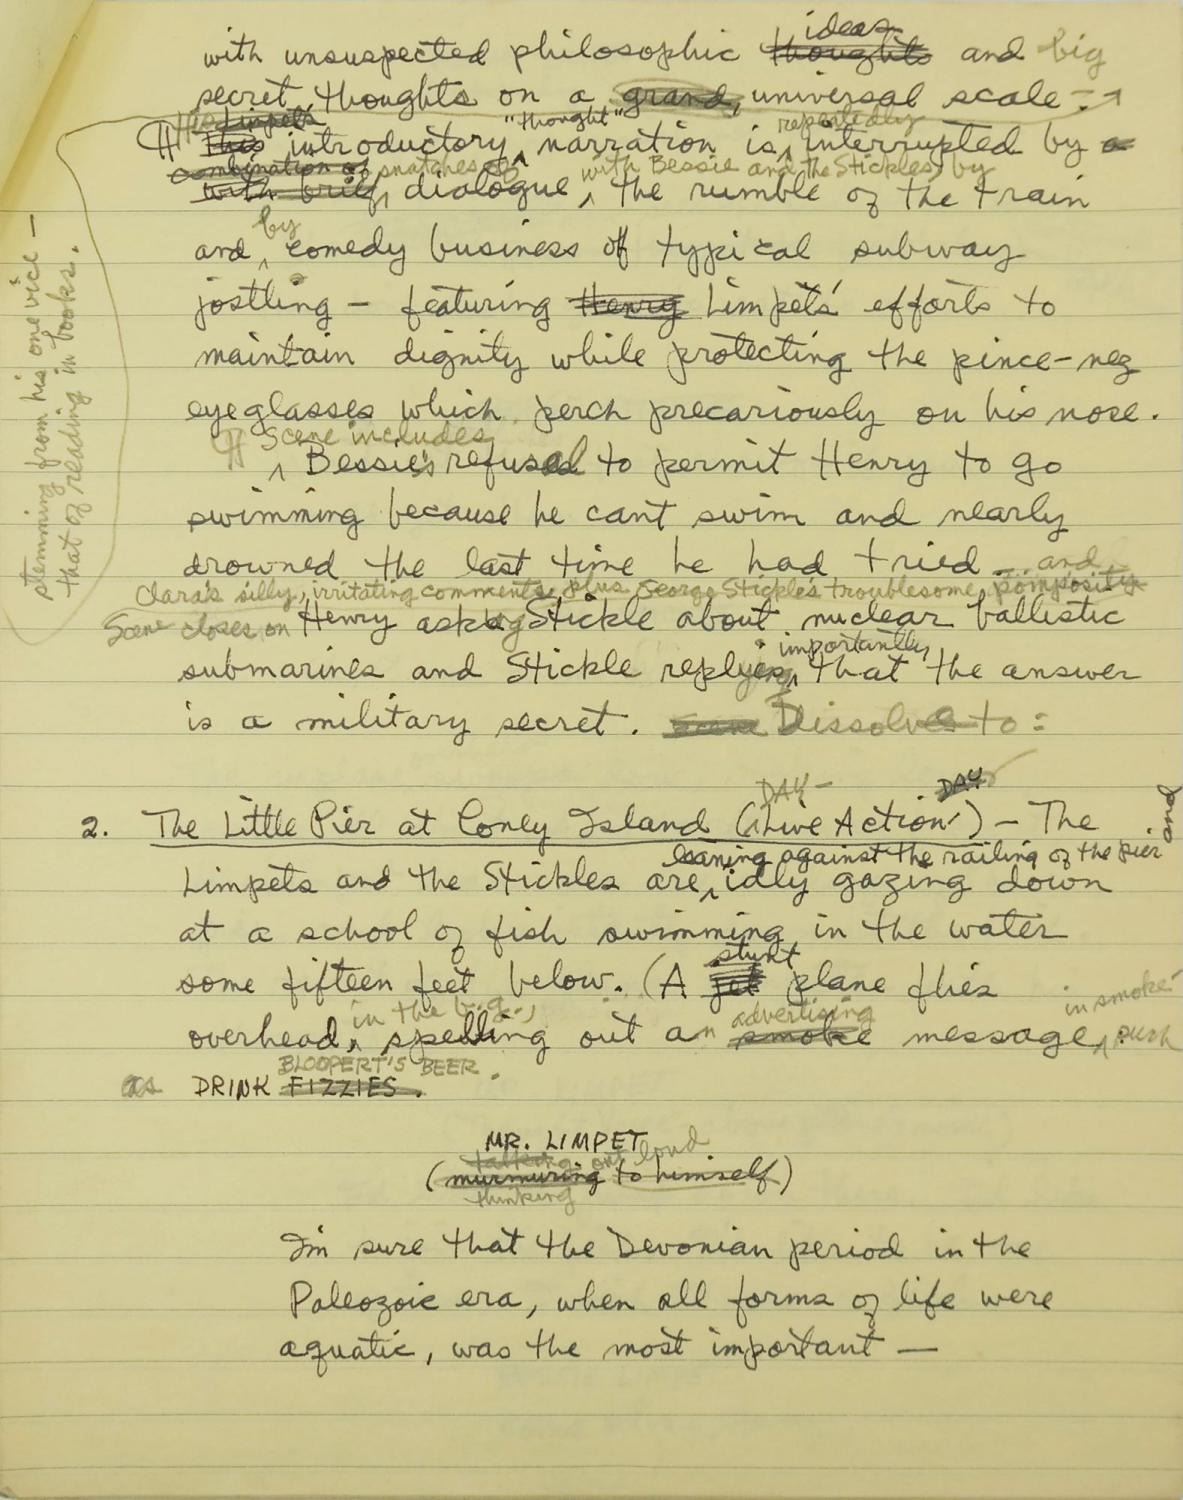 ideas
with unsuspected philosophic thoughts and big
secret thoughts on a grand, universal scale -
stemming from his one vice —
that of reading in books.
Limpet's "thought" repeatedly
¶ This introductory narration is interrupted by a
combination of snatches of with Bessie and the Stickles, by
with brief dialogue, the rumble of the train
by
and comedy business of typical subway
jostling — featuring Henry Limpet's efforts to
maintain dignity while protecting the pince-nez
eyeglasses which perch precariously on his nose.
¶ Scene includes
Bessie's refusal to permit Henry to go
swimming because he can't swim and nearly
drowned the last time he had tried ... and
Clara's silly, irritating comments, plus George Stickle's troublesome pomposity.
Scene closes on Henry asking Stickle about nuclear ballistic
importantly
submarines and Stickle replying that the answer
is a military secret. Scene Dissolves to:
DAY — DAY
2. The Little Pier at Coney Island (Live Action) — The
leaning against the railing of the pier and
Limpets and the Stickles are idly gazing down
at a school of fish swimming in the water
stunt
some fifteen feet below. (A jet plane flies
in the b.g., advertising in smoke
overhead, spelling out an smoke message, such
BLOOPERT'S BEER.
as DRINK FIZZIES.
MR. LIMPET
talking out loud
(murmuring to himself)
thinking
I'm sure that the Devonian period in the
Paleozoic era, when all forms of life were
aquatic, was the most important —